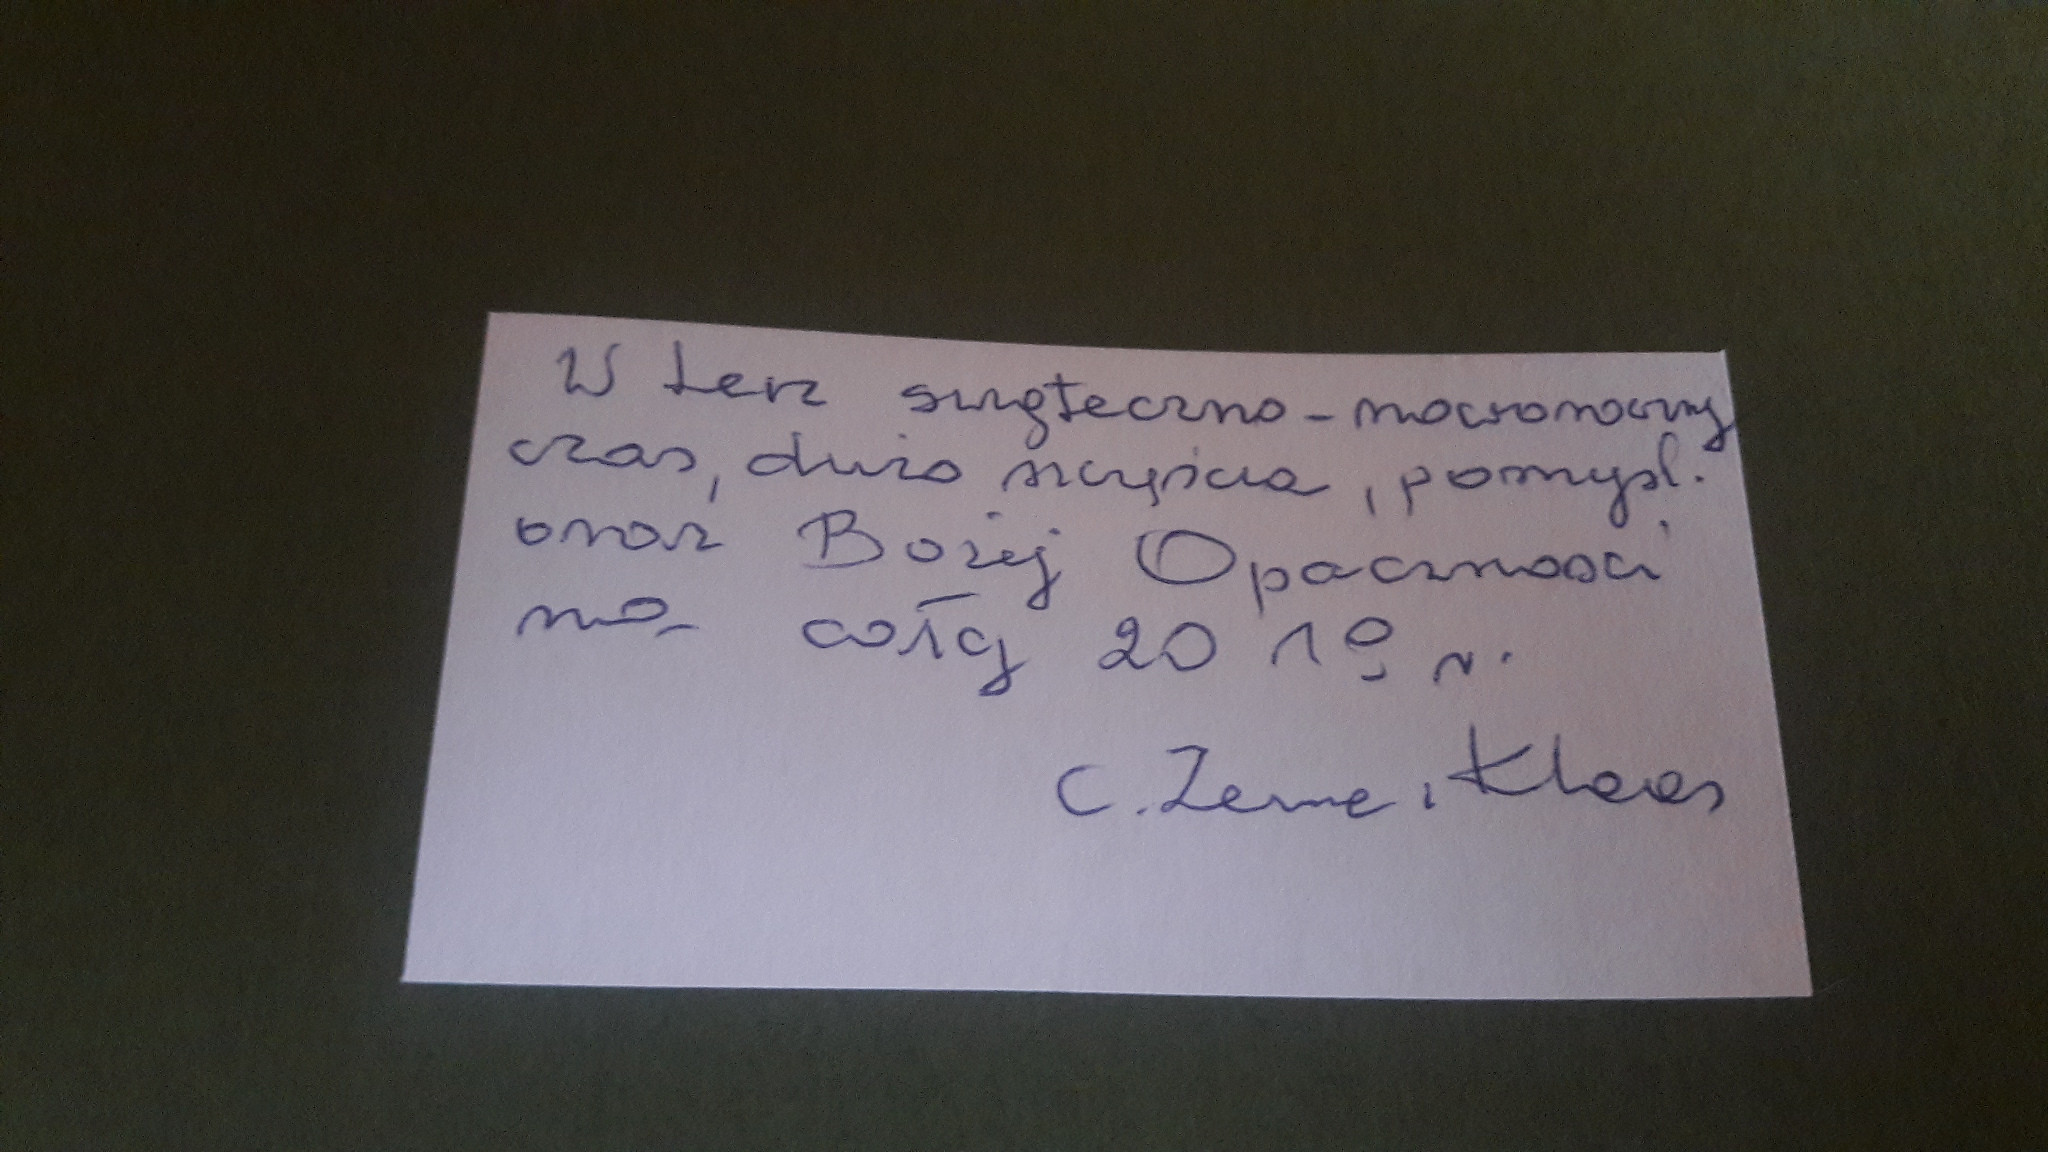 W ten świąteczno-noworoczny
czas, dużo szczęścia, pomyśl.
oraz Bożej Opaczności
na cały 2019 r.
C. Zenia i Klaas